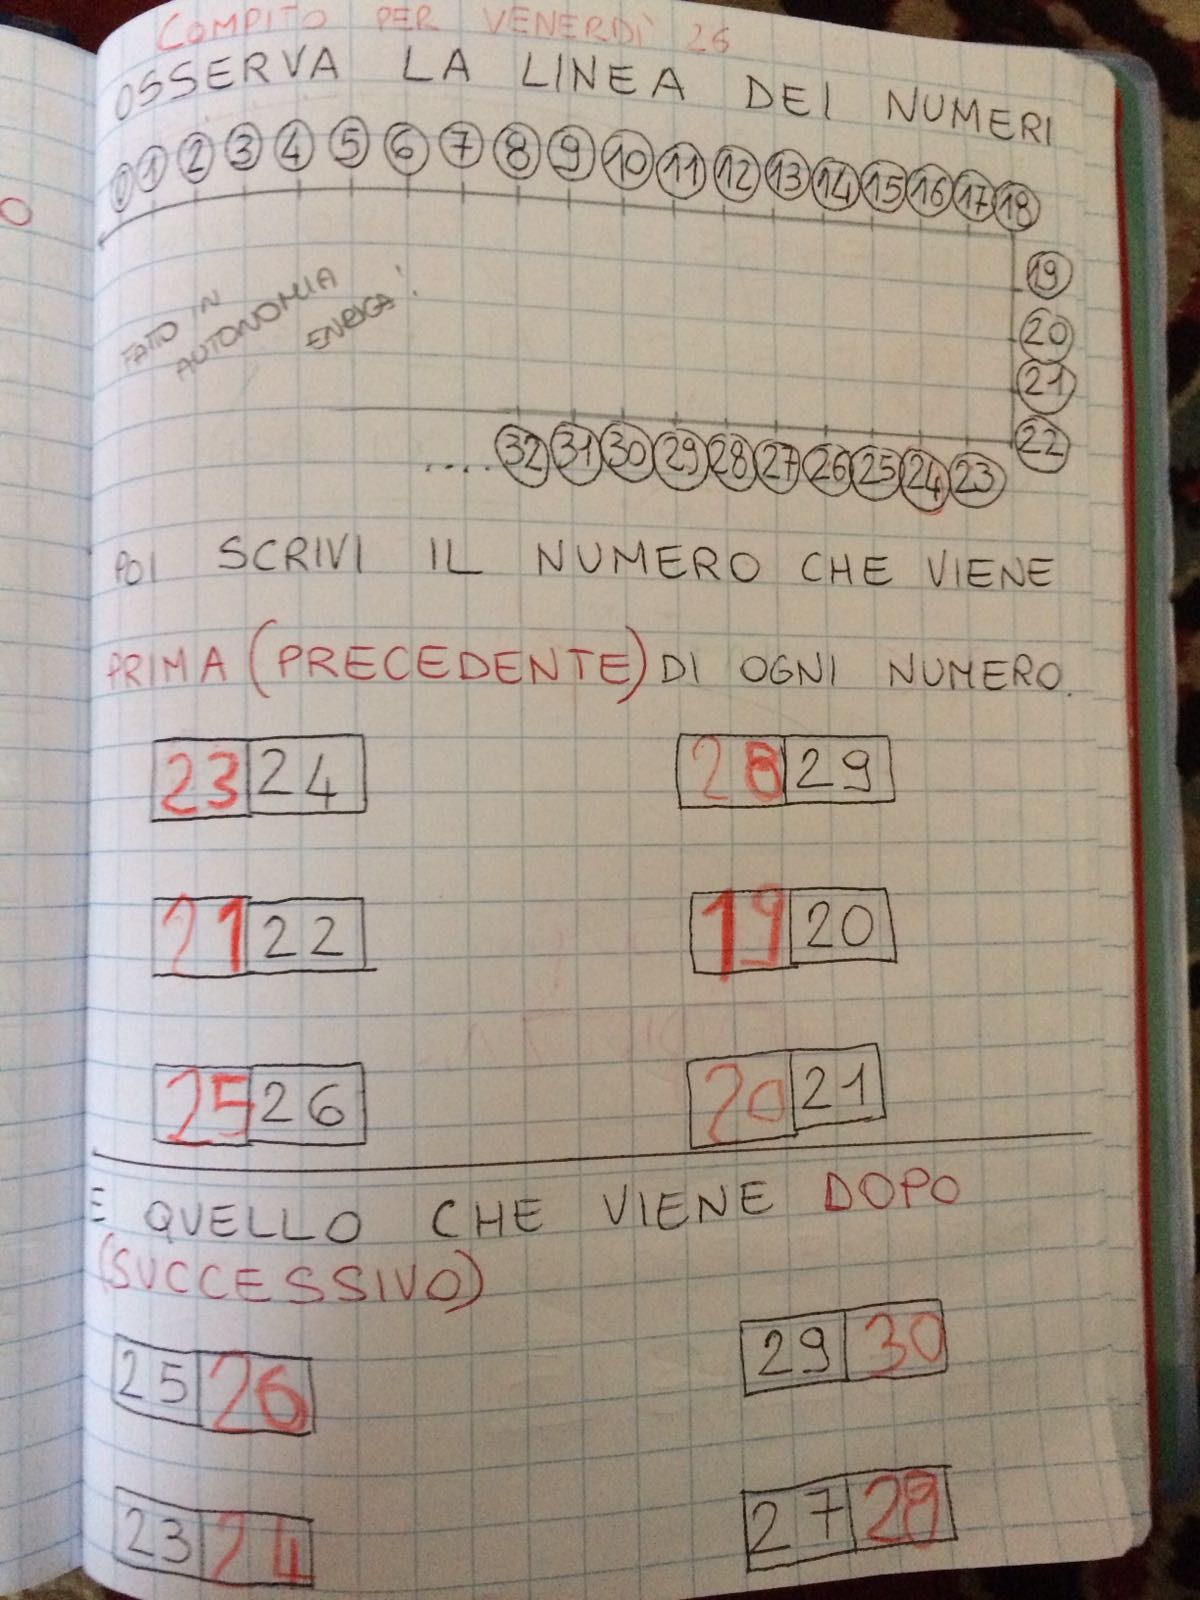 COMPITO PER VENERDÌ 26
OSSERVA LA LINEA DEI NUMERI
0 1 2 3 4 5 6 7 8 9 10 11 12 13 14 15 16 17 18
19
20
21
22
FATTO IN
AUTONOMIA
ENRICA!
.... 32 31 30 29 28 27 26 25 24 23
POI SCRIVI IL NUMERO CHE VIENE
PRIMA (PRECEDENTE) DI OGNI NUMERO.
23 24 28 29
21 22 19 20
25 26 20 21
E QUELLO CHE VIENE DOPO
(SUCCESSIVO)
25 26 29 30
23 24 27 28